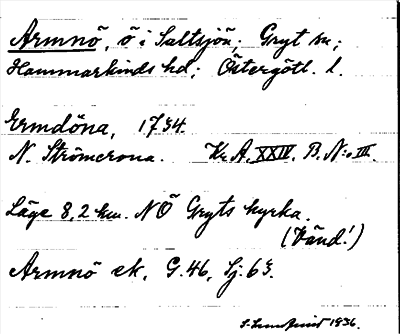 Armnö, ö i Saltsjön; Gryt sn;
Hammarkinds hd; Östergötl. l.
Ermdöna, 1734.
N. Strömcrona. Kr. A. XXIV. B. N:o III.
Läge 8,2 km. NÖ Gryts kyrka.
(Vänd!)
Armnö ek. G. 46, Sj. 63.
1936.